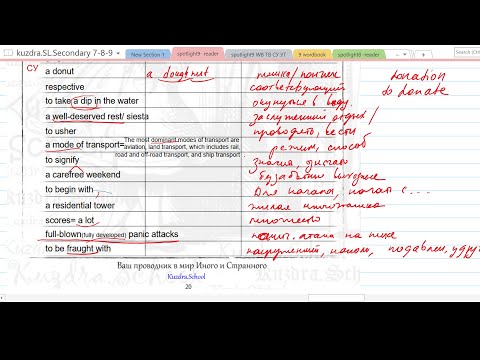 kuzdra.SL.Secondary 7-8-9
New Section 1
spotlight9- reader
spotlight9 WB TB СУ УТ
9 wordbook
spotlight8- reader
СУ
a donut a doughnut пышка/пончик donation
respective соответствующий to donate
to take a dip in the water окунуться в воду
a well-deserved rest/ siesta заслуженный отдых/
to usher проводить, вести
a mode of transport= The most dominant modes of transport are aviation, land transport, which includes rail, road and off-road transport, and ship transport . режим, способ
to signify
a carefree weekend
to begin with , Для начала, начать с ...
a residential tower жилая
scores= a lot множество
full-blown(fully developed) panic attacks атака на пике
to be fraught with
Ваш проводник в мир Иного и Странного
Kuzdra.School
20
Kuzdra.Sch